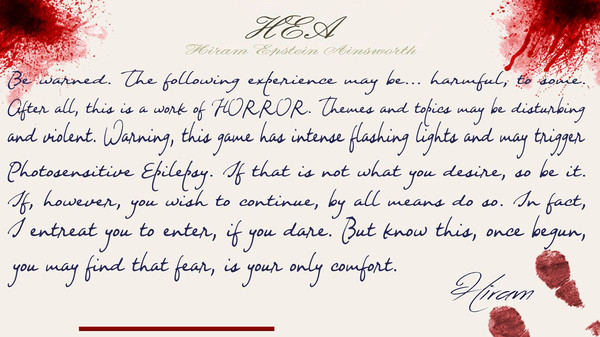 HEA
Hiram Epstein Ainsworth
Be warned. The following experience may be... harmful, to some.
After all, this is a work of HORROR. Themes and topics may be disturbing
and violent. Warning, this game has intense flashing lights and may trigger
Photosensitive Epilepsy. If that is not what you desire, so be it.
If, however, you wish to continue, by all means do so. In fact,
I entreat you to enter, if you dare. But know this, once begun,
you may find that fear, is your only comfort.
Hiram